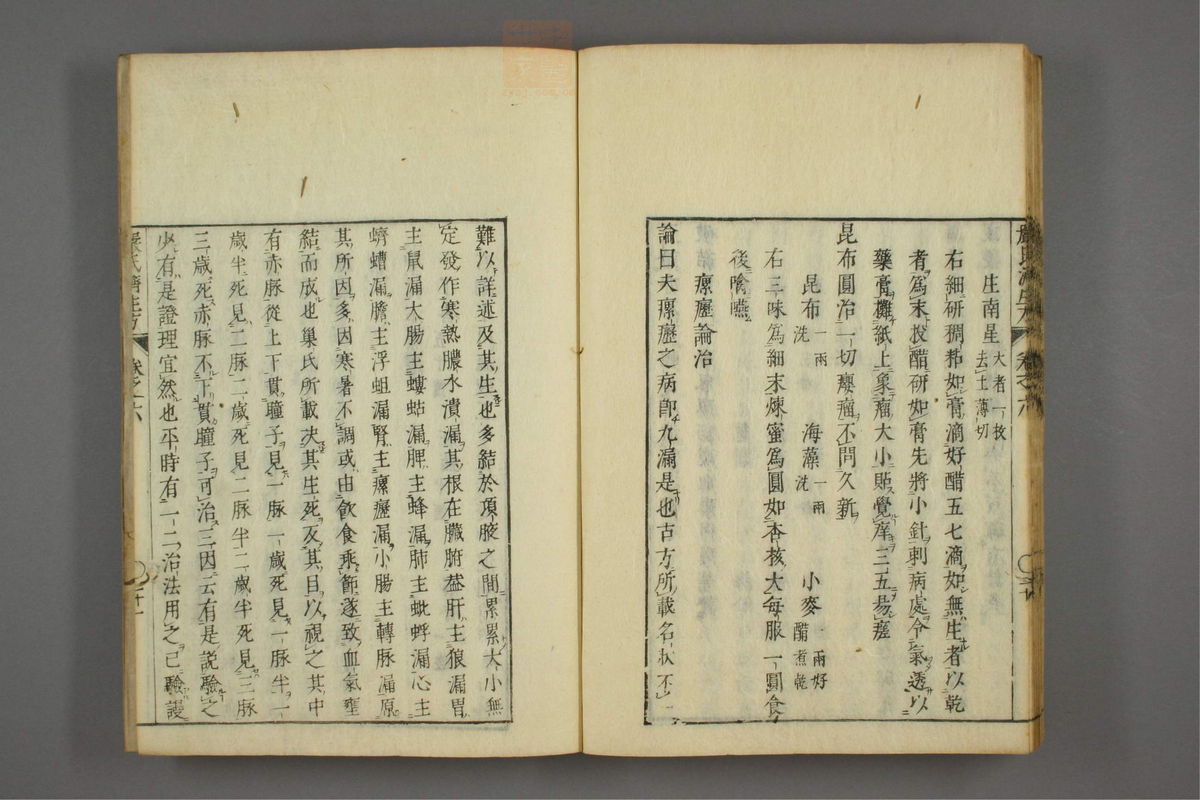 生南星 大者一枚去土薄切
右細研稠粘如膏滴好醋五七滴如無生者以乾
者爲末投醋研如膏先將小針刺病處令氣透以
藥膏攤紙上象瘤大小貼覺痒三五易瘥
昆布圓治一切癭瘤不問久新
昆布 一兩洗 海藻 一兩洗 小麥 一兩好醋煮乾
右三味爲細末煉蜜爲圓如杏核大每服一圓食
後噙嚥
瘰癧論治
論曰夫瘰癧之病卽九漏是也古方所載名狀不一
難以詳述及其生也多結於項腋之間累累大小無
定發作寒熱膿水潰漏其根在臟腑蓋肝主狼漏胃
主鼠漏大腸主螻蛄漏脾主蜂漏肺主蚍蜉漏心主
蠐螬漏膽主浮蛆漏腎主瘰癧漏小腸主轉脉漏原
其所因多因寒暑不調或由飮食乖節遂致血氣壅
結而成也巢氏所載决其生死反其目以視之其中
有赤脉從上下貫瞳子見一脉一歲死見一脉半一
歲半死見二脉二歲死見二脉半二歲半死見三脉
三歲死赤脉不下貫瞳子可治三因云有是說驗之
少有是證理宜然也平時有一二治法用之已驗謾
嚴氏濟生方 卷之六